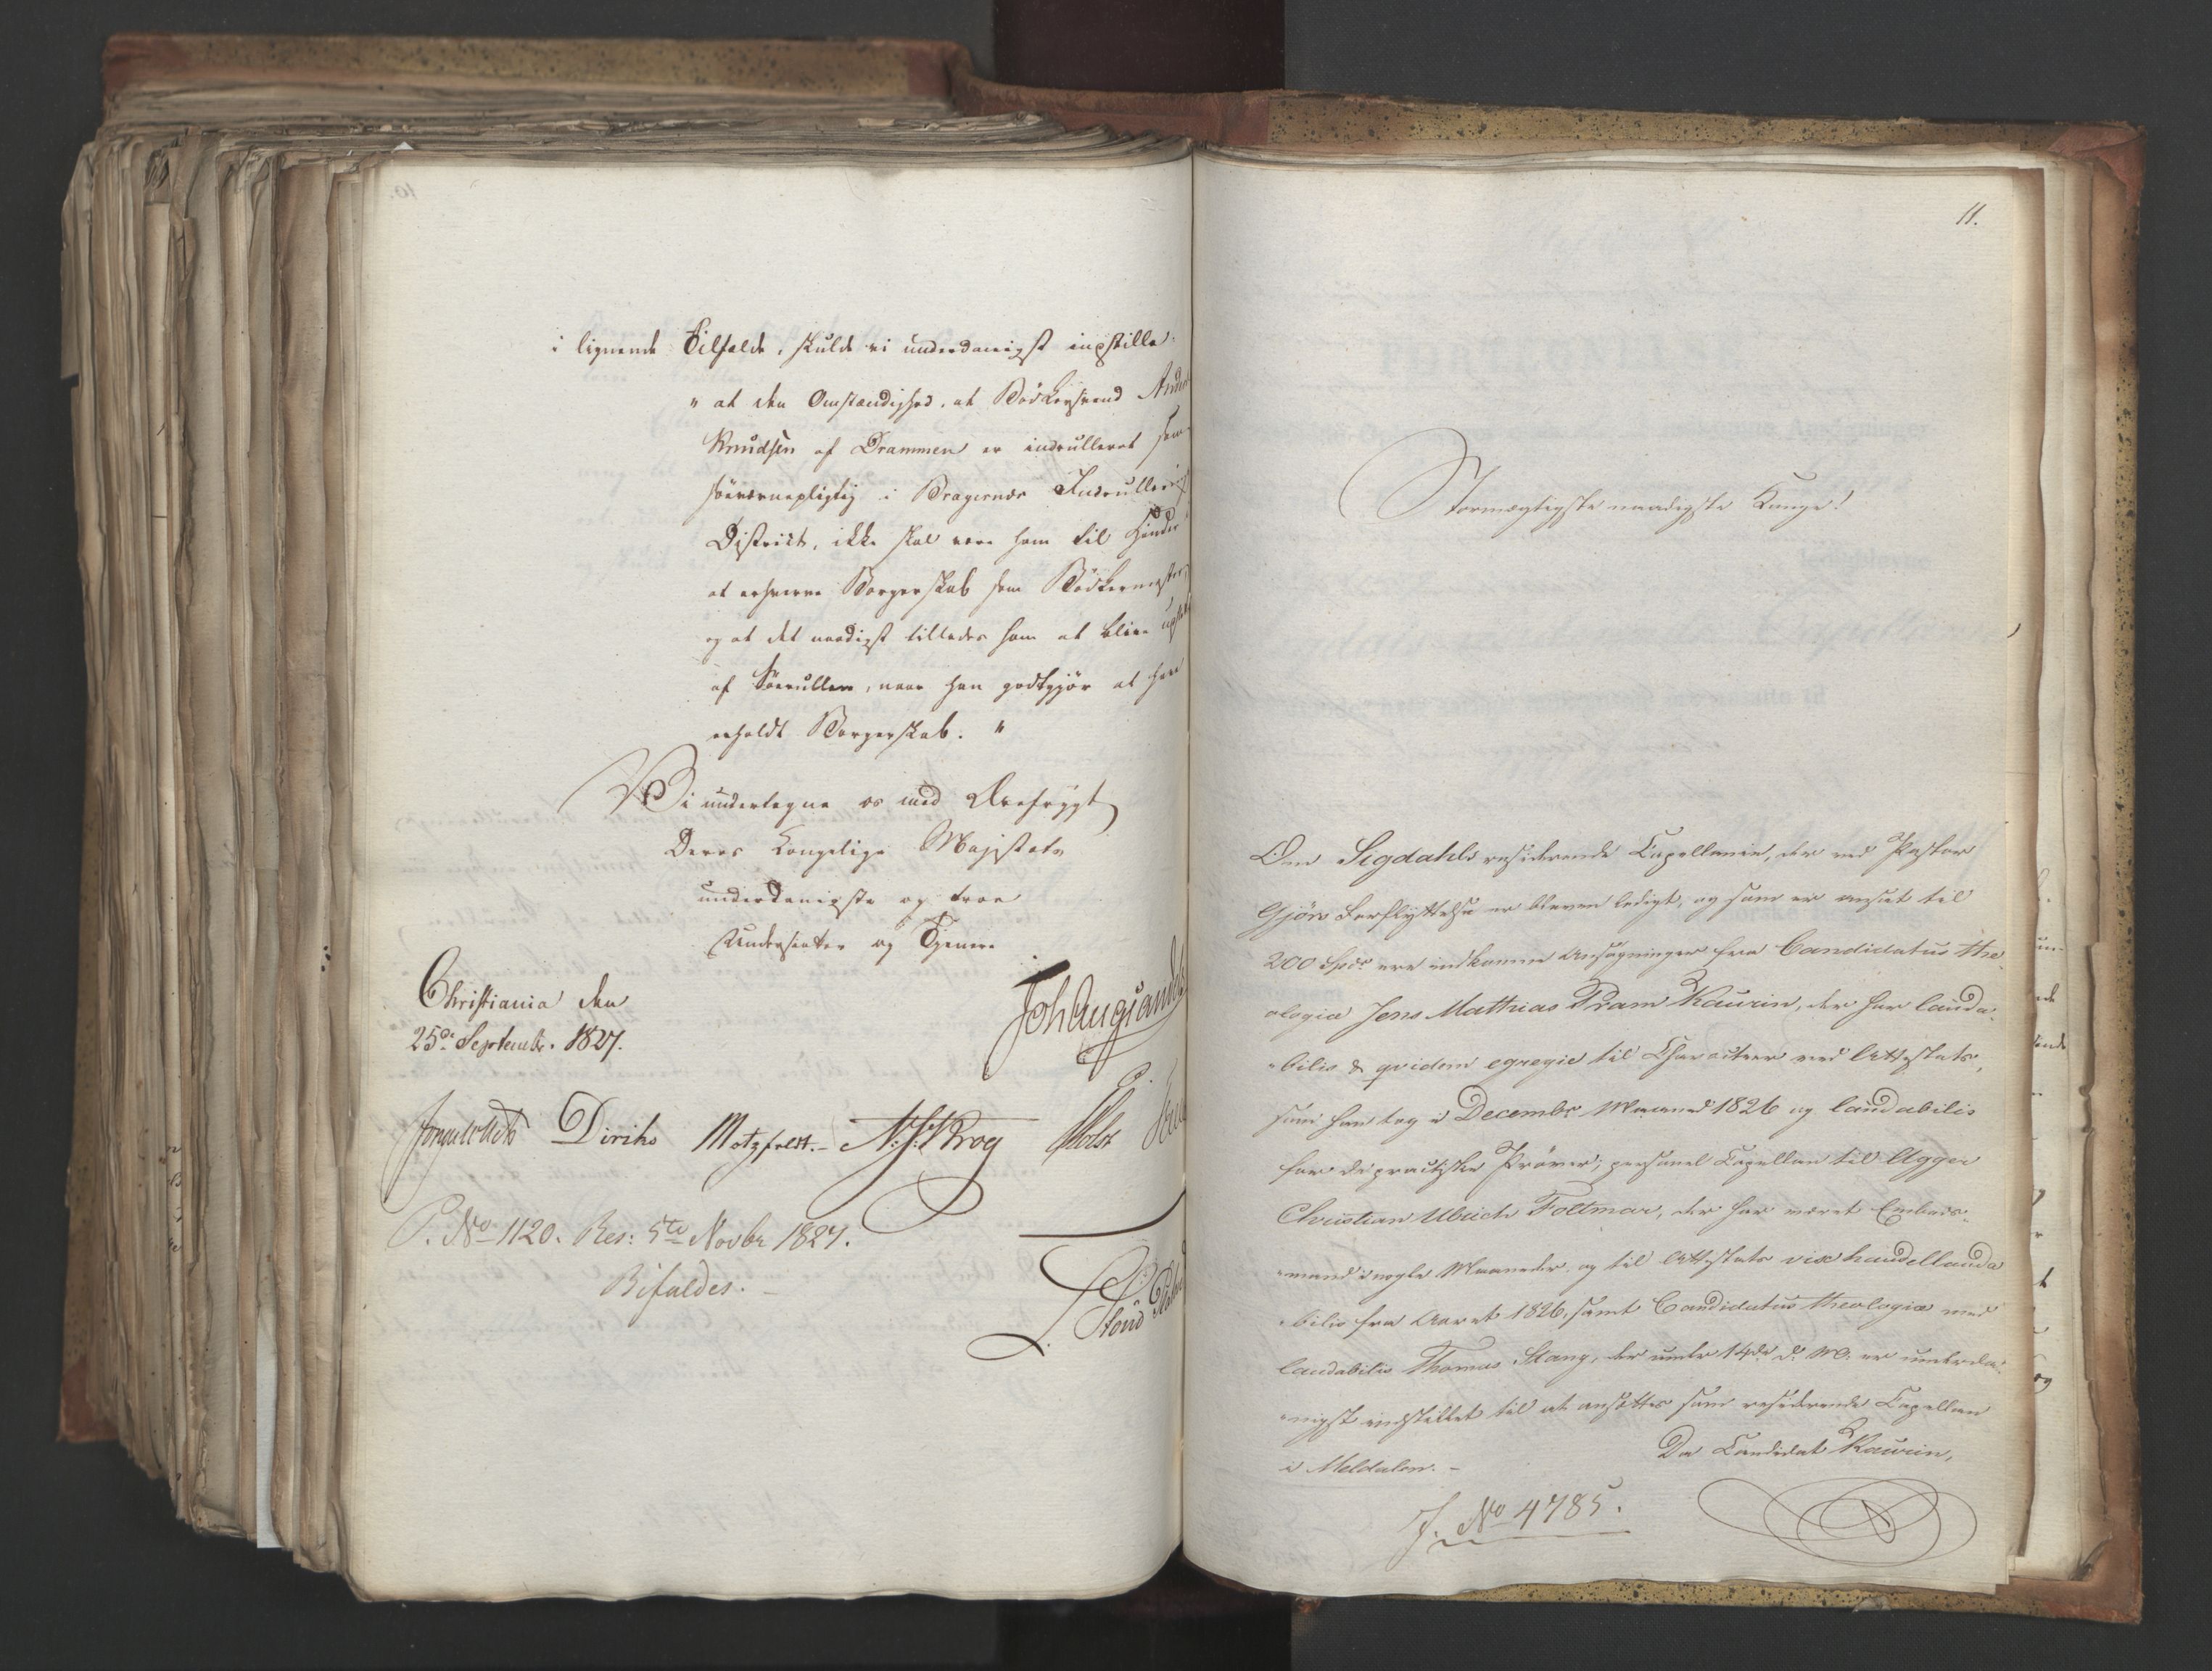 i lignende Tilfælde, skulde vi underdanigst indstille:
" at den Omstændighed, at Bödkersvend
Knudsen af Drammen er indrulleret som
söeværnepligtig i Bragernæs Indrullerings
District, ikke skal være ham til Hinder
at erhverve Borgerskab som Bödkermester,
og at det naadigst tillades ham at blive
af Söerullen, naar han godtgjör at have
erholdt Borgerskab. "
Vi undertegne os med Ærefrygt
Deres Kongelige Majestæts
underdanigste og troe
Undersaatter og Tjenere
Christiania den
25de Septembr. 1827.
Diriks Motzfeldt.- Krog Holst
P. No 1120. Res: 5te Novbr 1827.
Bifaldes. -
11.
Stormægtigste naadigste Konge!
Om Sigdahls residerende Capellanie, der ved Pastor
Gjörs Forflyttelse er bleven ledigt, og som er ansat til
200 Spdr ere indkomne Ansögninger fra Candidatus the-
ologiæ Jens Mathias Pram Kaurin, der har lauda-
"bilis & qvidem egregie til Characteer ved Attestats,
som han tog i Decembr Maaned 1826 og laudabilis
for de practiske Pröver; personel Capellan til Agger
Christian Ulrich Foltmar, der har været Embeds-
"mand i nogle Maaneder og til Attestats vix haud illauda
"bilis fra Aaret 1826, samt Candidatus theologiæ med
laudabilis Thomas Stang, der under 14de d. M. er underda-
"nigst indstillet til at ansættes som residerende Capellan
i Meldalen. -
Da Candidat Kaurin,
J. No 4785.